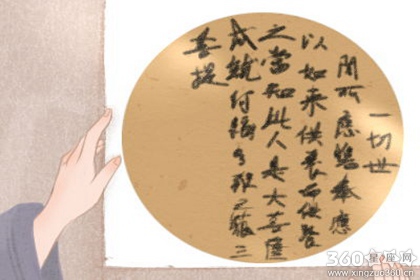 一切世
間所應瞻奉應
以如来供養而供養
之當知此人是大菩薩
成就阿耨多羅三藐三
菩提
360星座网
www.xingzuo360.cn